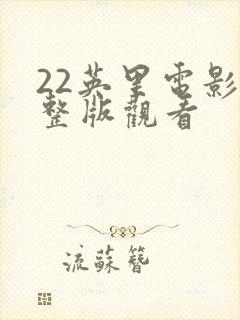 22英里電影
整版觀看
流蘇簪